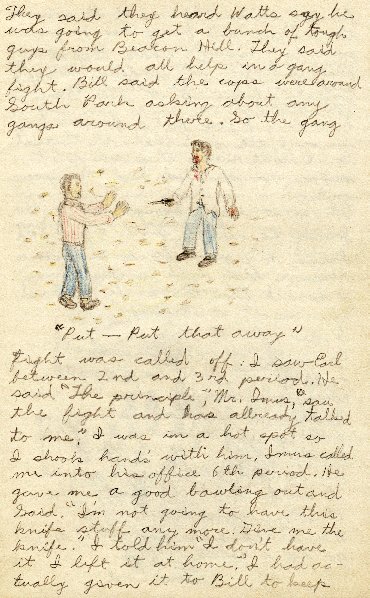 They said they heard Watts say he
was going to get a bunch of tough
guys from Beacon Hill. They said
they would all help in a gang
fight. Bill said the cops were around
South Park asking about any
gangs around there. So the gang
"Put — Put that away"
fight was called off. I saw Earl
between 2nd and 3rd period. He
said "The principle, Mr. Imus, saw
the fight and has allready talked
to me." I was in a hot spot so
I shook hands with him. Imus called
me into his office 6th period. He
gave me a good bawling out and
said "I'm not going to have this
knife stuff any more. Give me the
knife." I told him "I don't have
it I left it at home. I had ac-
tually given it to Bill to keep